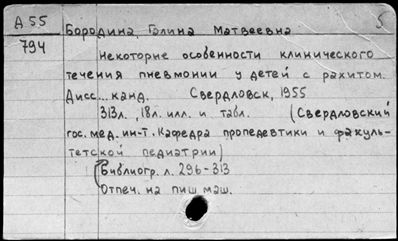 Д 55
794
5
Бородина, Галина Матвеевна
Некоторые особенности клинического
течения пневмонии у детей с рахитом.
Дисс... канд. Свердловск, 1955
313л., 18л. илл. и табл. (Свердловский
гос. мед. ин-т. Кафедра пропедевтики и факуль-
тетской педиатрии)
Библиогр. л. 296-313
Отпеч. на пиш маш.